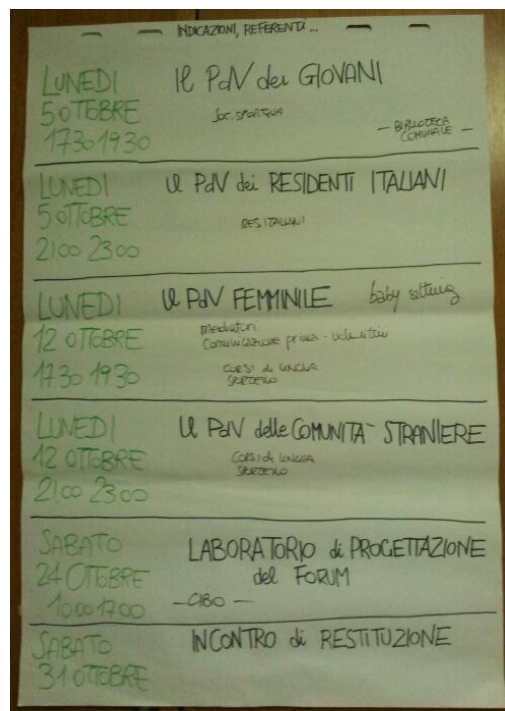 INDICAZIONI, REFERENTI...
LUNEDI
5 OTTOBRE
1730 1930
Il PdV dei GIOVANI
SOC. SPORTIVA
- BIBLIOTECA
COMUNALE -
LUNEDI
5 OTTOBRE
2100 2300
Il PdV dei RESIDENTI ITALIANI
RES ITALIANI
LUNEDI
12 OTTOBRE
1730 1930
Il PdV FEMMINILE
baby sitting
mediatori
Comunicazione prima -
CORSI di LINGUA
SPORTELLO
LUNEDI
12 OTTOBRE
2100 2300
Il PdV delle COMUNITA' STRANIERE
CORSI di LINGUA
SPORTELLO
SABATO
24 OTTOBRE
1000 1700
LABORATORIO di PROGETTAZIONE
del FORUM
- CIBO -
SABATO
31 OTTOBRE
INCONTRO di RESTITUZIONE